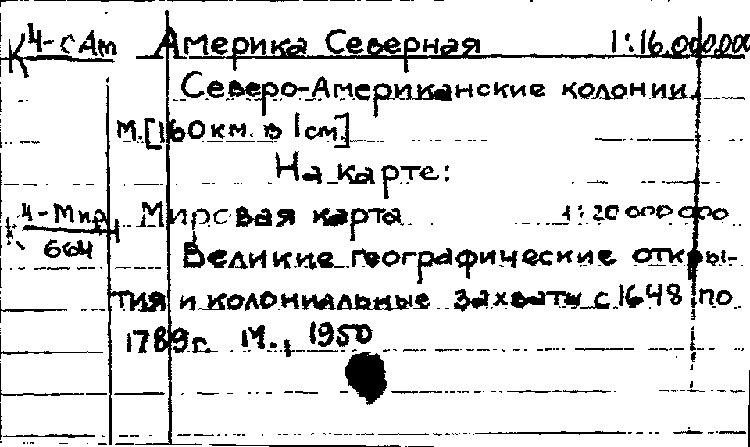 К 4-САм Америка Северная 1:16.000.000
Северо-Американские колонии.
М.[160 км. в 1 см.]
На карте:
К 4-Мир Мировая карта 1:20 000 000
664
Великие географические откры-
тия и колониальные захваты с 1648 по
1789г. М., 1950